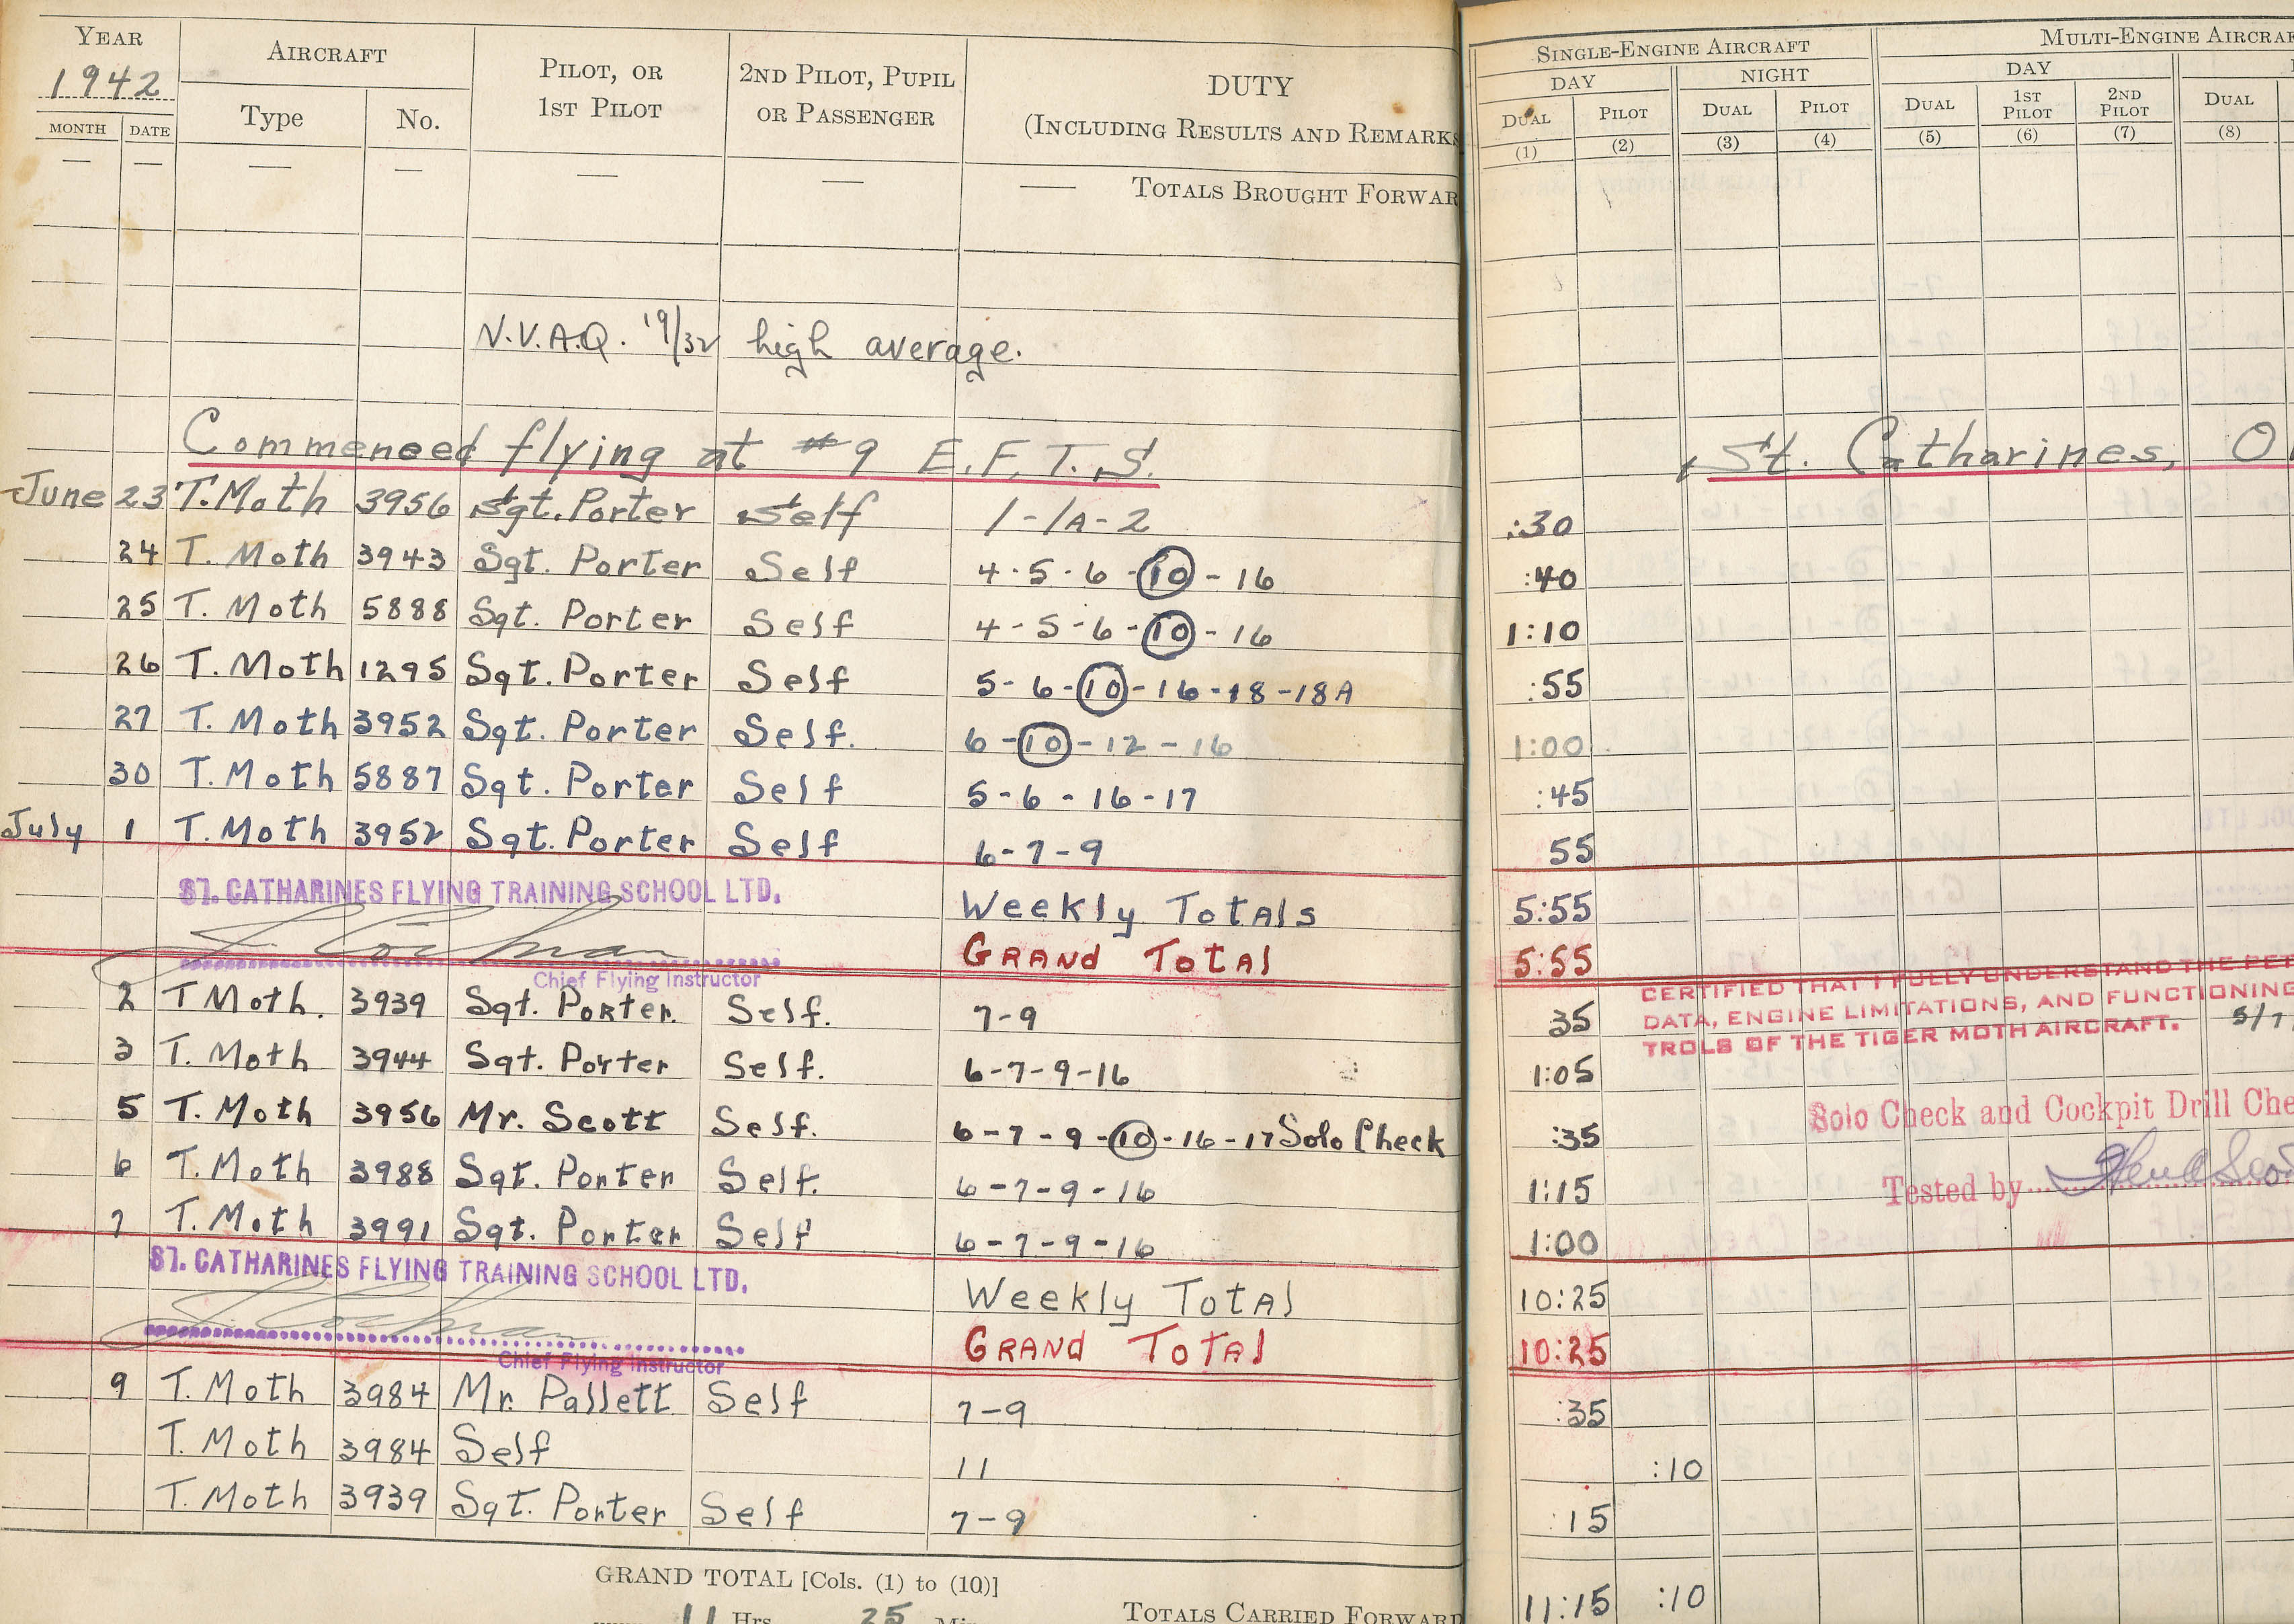 YEAR
1942
AIRCRAFT
PILOT, OR
1ST PILOT
2ND PILOT, PUPIL
OR PASSENGER
DUTY
(INCLUDING RESULTS AND REMARKS
MONTH DATE Type No.
— — — — — — — TOTALS BROUGHT FORWAR
SINGLE-ENGINE AIRCRAFT MULTI-ENGINE AIRCRA
DAY NIGHT DAY
DUAL PILOT DUAL PILOT DUAL 1ST PILOT 2ND PILOT DUAL
(1) (2) (3) (4) (5) (6) (7) (8)
N.V.A.Q. 19/32 high average.
Commenced flying at #9 E.F.T.S. St. Catharines, O
June 23 T. Moth 3956 Sgt. Porter Self 1-1A-2 :30
24 T. Moth 3943 Sgt. Porter Self 4-5-6-10-16 :40
25 T. Moth 5888 Sgt. Porter Self 4-5-6-10-16 1:10
26 T. Moth 1295 Sgt. Porter Self 5-6-10-16-18-18A :55
27 T. Moth 3952 Sgt. Porter Self. 6-10-12-16 1:00
30 T. Moth 5887 Sgt. Porter Self 5-6-16-17 :45
July 1 T. Moth 3952 Sgt. Porter Self 6-7-9 55
ST. CATHARINES FLYING TRAINING SCHOOL LTD. Weekly Totals 5:55
GRAND TOTAL 5:55
Chief Flying Instructor
2 T Moth. 3939 Sgt. Porter. Self. 7-9 35
3 T. Moth 3944 Sgt. Porter Self. 6-7-9-16 1:05
CERTIFIED THAT I FULLY UNDERSTAND THE PET
DATA, ENGINE LIMITATIONS, AND FUNCTIONING
TROLS OF THE TIGER MOTH AIRCRAFT. 5/7
5 T. Moth 3956 Mr. Scott Self. 6-7-9-10-16-17 Solo Check :35
Solo Check and Cockpit Drill Che
6 T. Moth 3988 Sgt. Porter Self. 6-7-9-16 1:15
Tested by
7 T. Moth 3991 Sgt. Porter Self 6-7-9-16 1:00
ST. CATHARINES FLYING TRAINING SCHOOL LTD. Weekly Total 10:25
GRAND TOTAL 10:25
Chief Flying Instructor
9 T. Moth 3984 Mr. Pallett Self 7-9 :35
T. Moth 3984 Self 11 :10
T. Moth 3939 Sgt. Porter Self 7-9 :15
GRAND TOTAL [Cols. (1) to (10)]
11 Hrs. 25 Min
TOTALS CARRIED FORWARD 11:15 :10